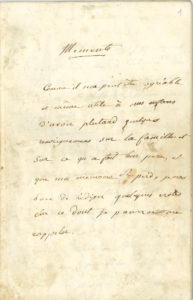 1
Memento
Comme il me peut être agréable
et même utile à mes enfans
d'avoir plutard quelques
renseignemens sur la famille et
sur ce qu'a fait leur père, et
que ma mémoire se perd, je
de rédiger quelques notes
sur ce dont je pourrai me
rappeler.